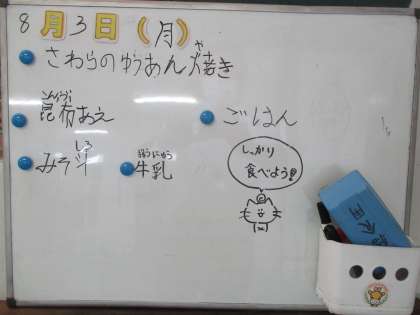 8月3日(月)
さわらのゆうあん焼き
や
こんぶ
昆布あえ
ごはん
みそ汁
しる
牛乳
ぎゅうにゅう
しっかり
食べよう!!